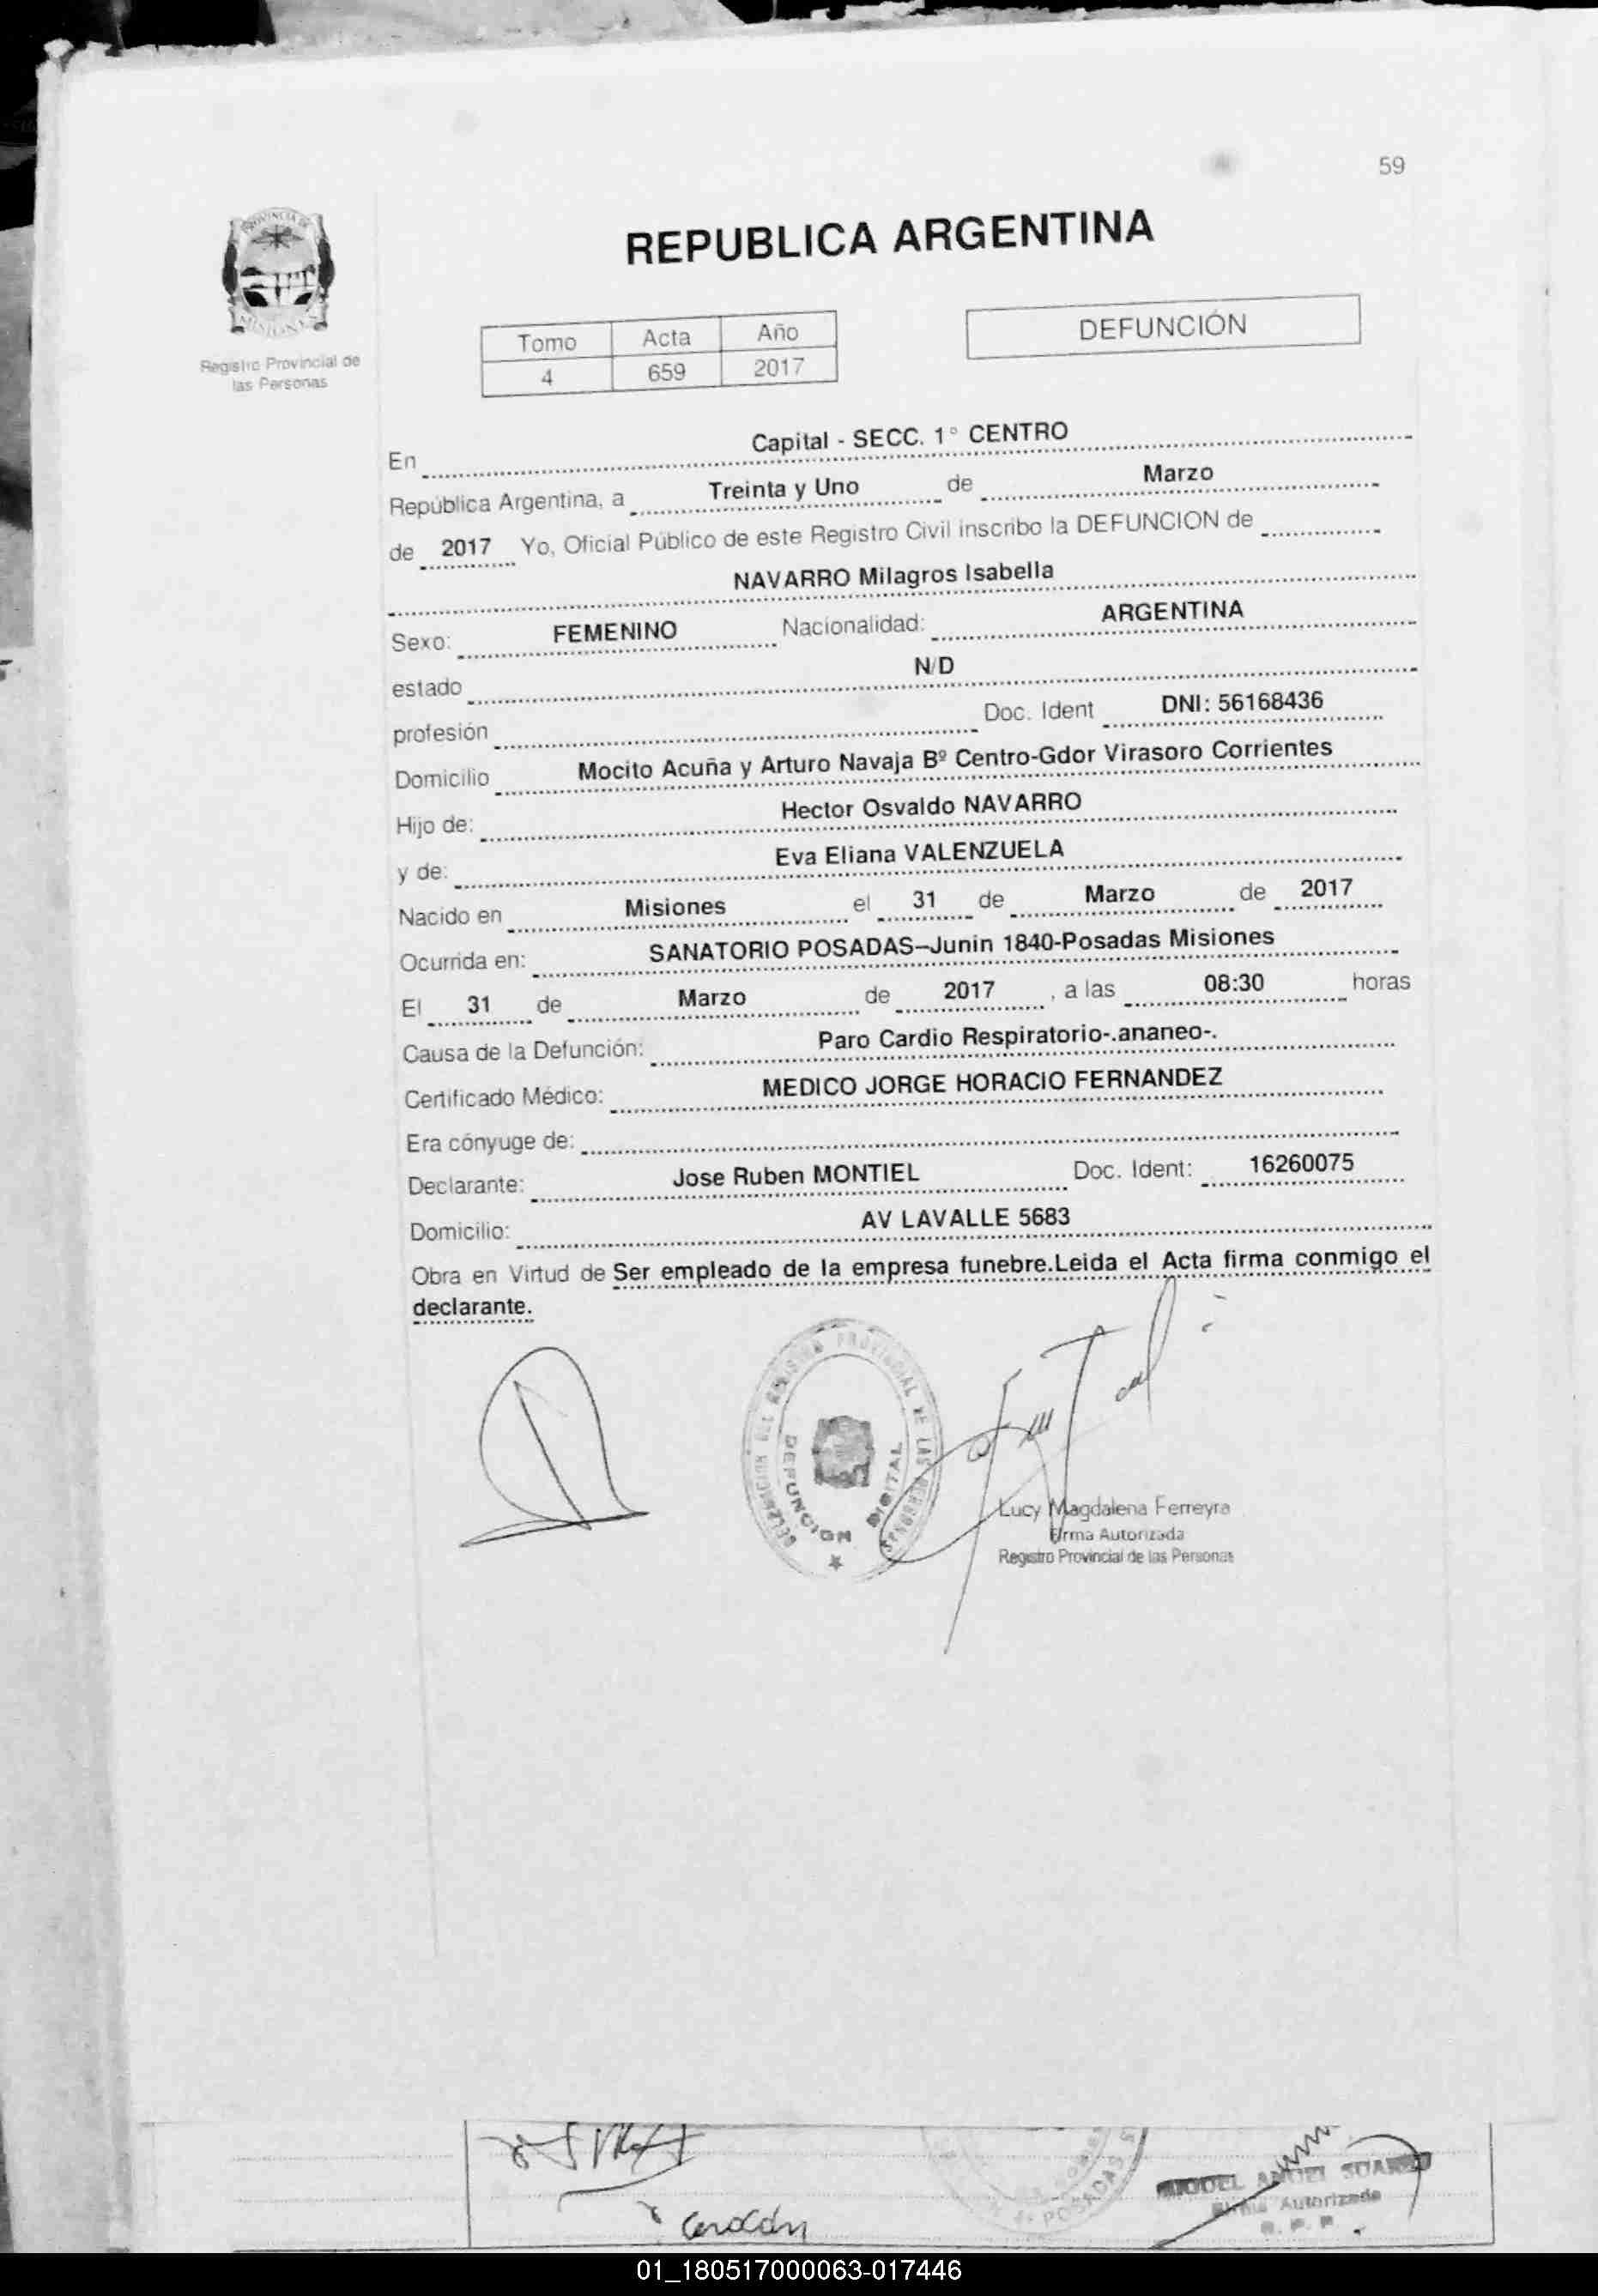 59
PROVINCIA DE
MISIONES
Registro Provincial de
las Personas
REPUBLICA ARGENTINA
Tomo Acta Año
4 659 2017
DEFUNCIÓN
En Capital - SECC. 1° CENTRO
República Argentina, a Treinta y Uno de Marzo
de 2017 Yo, Oficial Público de este Registro Civil inscribo la DEFUNCION de
NAVARRO Milagros Isabella
Sexo: FEMENINO Nacionalidad: ARGENTINA
estado N/D
profesión Doc. Ident DNI: 56168436
Domicilio Mocito Acuña y Arturo Navaja Bº Centro-Gdor Virasoro Corrientes
Hijo de: Hector Osvaldo NAVARRO
y de: Eva Eliana VALENZUELA
Nacido en Misiones el 31 de Marzo de 2017
Ocurrida en: SANATORIO POSADAS–Junin 1840-Posadas Misiones
El 31 de Marzo de 2017 , a las 08:30 horas
Causa de la Defunción: Paro Cardio Respiratorio-.ananeo-.
Certificado Médico: MEDICO JORGE HORACIO FERNANDEZ
Era cónyuge de:
Declarante: Jose Ruben MONTIEL Doc. Ident: 16260075
Domicilio: AV LAVALLE 5683
Obra en Virtud de Ser empleado de la empresa funebre.Leida el Acta firma conmigo el
declarante.
PROVINCIAL DE LAS PERSONAS
DEFUNCION DIGITAL
Lucy Magdalena Ferreyra
Firma Autorizada
Registro Provincial de las Personas
POSADAS
MIGUEL ANGEL SUAREZ
Firma Autorizada
R. P. P.
01_180517000063-017446